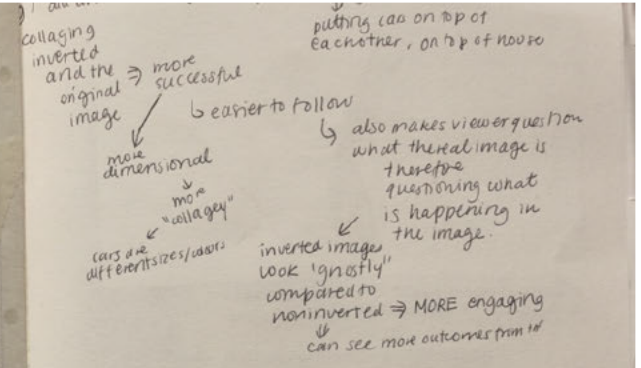 collaging
inverted
and the
original
image
⇒ more
successful
↳ easier to follow
more
dimensional
more
"collagey"
cars are
different sizes/colours
putting cars on top of
eachother, on top of house
↳ also makes viewer question
what the real image is
therefore
questioning what
is happening in
the image.
inverted images
look 'ghostly"
compared to
noninverted ⇒ MORE engaging
can see more outcomes from